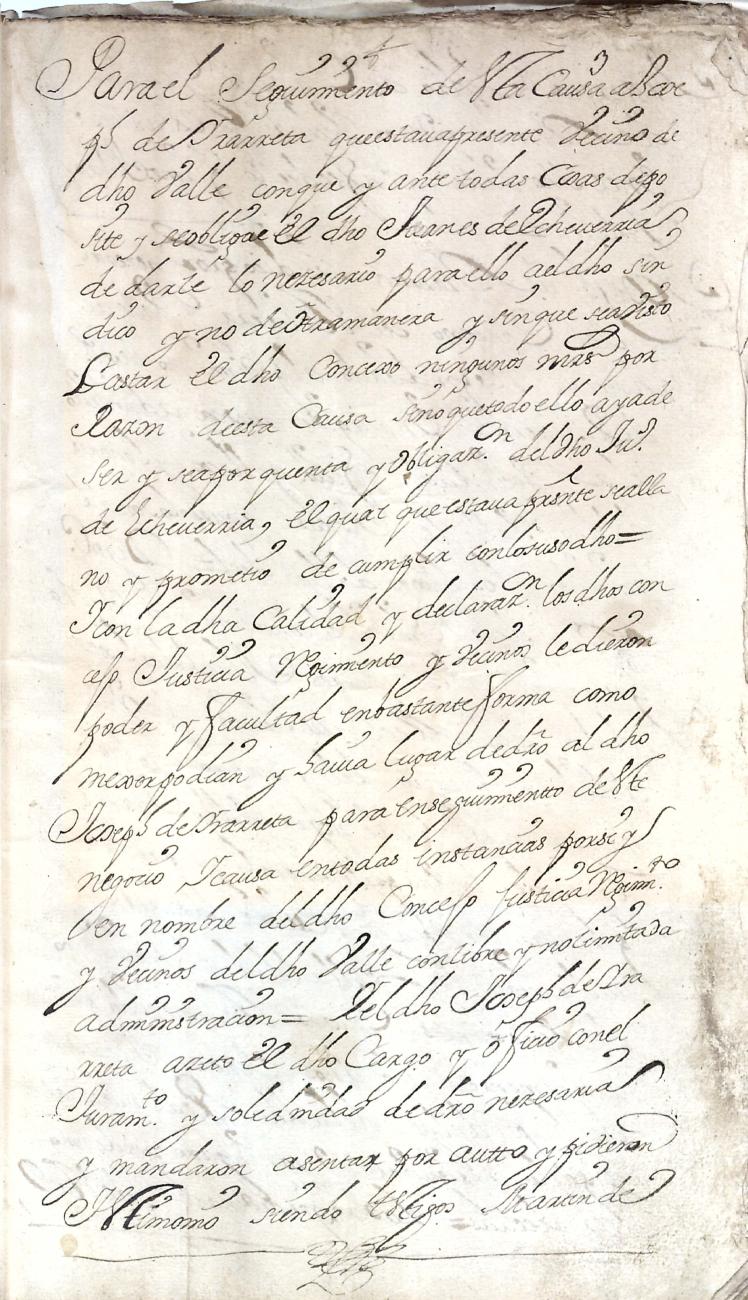 Para el Seguimiento de esta Causa a
ph de Yrarreta que estava presente Vecino de
dho Valle con que y ante todas Cosas depo
site y se obligue El dho Juanes de Echeverria
de darle lo nezesario para ello a el dho sin
dico y no de otra manera y sin que sea visto
Gastar El dho Concexo ningunos mrs por
Razon desta Causa sino que todo ello aya de
ser y sea por quenta y obligazn del dho Jus.
de Echeverria, El qual que estava presnte se alla
no y prometio de cumplir con lo suso dho =
Y con la dha Calidad y declarazn. los dhos con
cejo Justicia Rejimiento y Vecinos le dieron
poder y facultad en bastante forma como
mexor podian y havia lugar de dro al dho
Joseph de Yrarreta para en seguimientto de este
negocio Y causa en todas instancias por si y
en nombre del dho Concejo Justicia Rejimto
y Vecinos del dho Valle con libre y no limitada
administracion = Y el dho Joseph de Yra
rreta azeto El dho Cargo y oficio con el
Juramto. y solednidad de dro nezesaria
y mandaron asentar por autto y pidieron
Testimonio siendo testigos Martin de